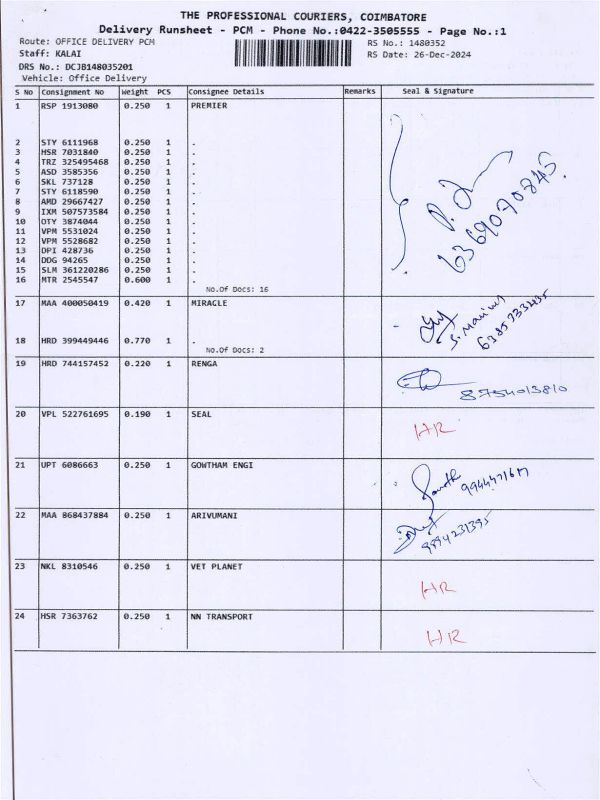 THE PROFESSIONAL COURIERS, COIMBATORE
Delivery Runsheet - PCM - Phone No.:0422-3505555 - Page No.:1
Route: OFFICE DELIVERY PCM
RS No.: 1480352
Staff: KALAI
RS Date: 26-Dec-2024
DRS No.: DCJB148035201
Vehicle: Office Delivery
S No Consignment No Weight PCS Consignee Details Remarks Seal & Signature
1 RSP 1913080 0.250 1 PREMIER
2 STY 6111968 0.250 1 .
3 HSR 7031840 0.250 1 .
4 TRZ 325495468 0.250 1 .
5 ASD 3585356 0.250 1 .
6 SKL 737128 0.250 1 .
7 STY 6118590 0.250 1 .
8 AMD 29667427 0.250 1 .
9 IXM 507573584 0.250 1 .
10 OTY 3874044 0.250 1 .
11 VPM 5531024 0.250 1 .
12 VPM 5528682 0.250 1 .
13 DPI 428736 0.250 1 .
14 DDG 94265 0.250 1 .
15 SLM 361220286 0.250 1 .
16 MTR 2545547 0.600 1 .
6369070845
No.Of Docs: 16
17 MAA 400050419 0.420 1 MIRACLE
18 HRD 399449446 0.770 1 .
No.Of Docs: 2
19 HRD 744157452 0.220 1 RENGA
8754013810
20 VPL 522761695 0.190 1 SEAL
HR
21 UPT 6086663 0.250 1 GOWTHAM ENGI
22 MAA 868437884 0.250 1 ARIVUMANI
9894231395
23 NKL 8310546 0.250 1 VET PLANET
HR
24 HSR 7363762 0.250 1 NN TRANSPORT
HR